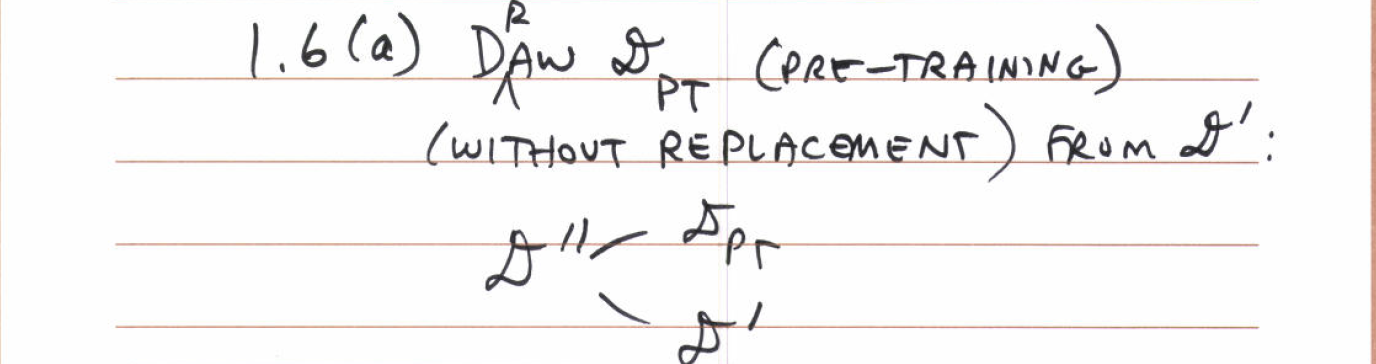 1.6 (a) DRAW 𝒟_PT (PRE-TRAINING)
(WITHOUT REPLACEMENT) FROM 𝒟':
𝒟'' 𝒟_PT
𝒟'